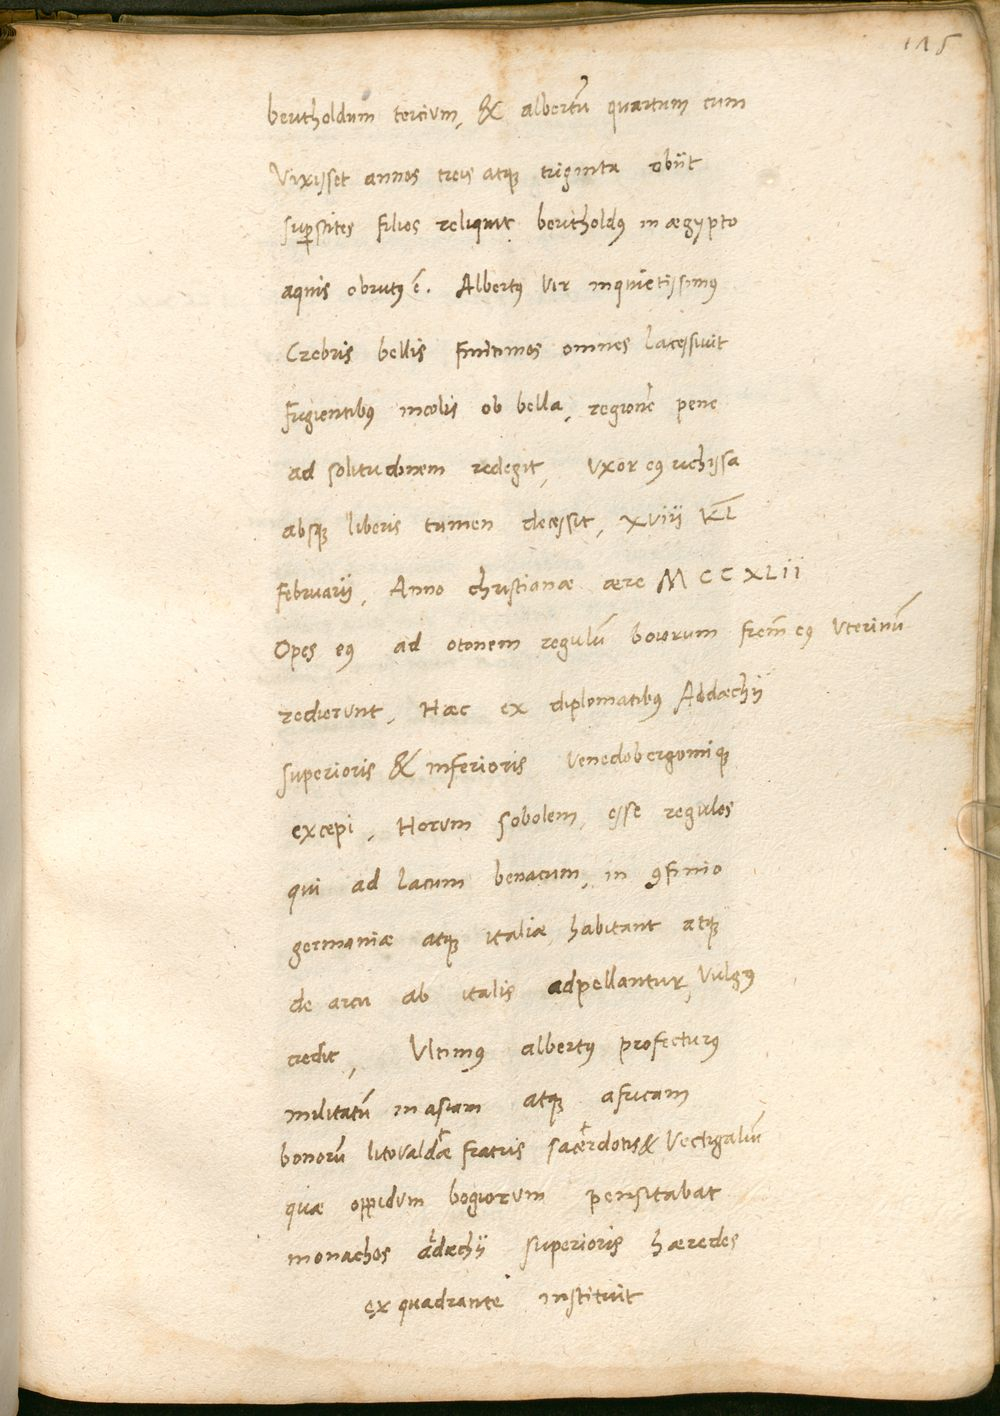 115
bertholdum tercium, & albertū quartum cum
Vixisset annos treis atqȝ triginta obiit
suꝑstites filios reliquit bertholdꝰ in ægypto
aquis obrutꝰ ē. Albertꝰ Vir inquietissimꝰ
Crebris bellis finitimos omnes lacessiuit
fugientibꝰ incolis ob bella, regionē pene
ad solitudinem redegit, Vxor eꝰ richissa
absqȝ liberis tamen decessit, XVIII KL
februarij, Anno christianæ ære M C C XLII
Opes eꝰ ad otonem regulū boiorum frem̄ eꝰ Vterinū
redierunt, Hæc ex diplomatibꝰ Addæchij
superioris & inferioris Venedobergomiqȝ
excepi, Horum sobolem, esse regulos
qui ad lacum benacum, in ꝯfinio
germaniæ atqȝ italiæ habitant atqȝ
de arcu ab italis adpellantur, Vulgꝰ
credit, Vltimꝰ albertꝰ profecturꝰ
militatū in asiam atqȝ africam
bonorū litovaldæ fratris sacerdotis & Vectigaliū
quæ oppidum bogiorum pensitabat
monachos addæchij superioris hæredes
ex quadrante instituit